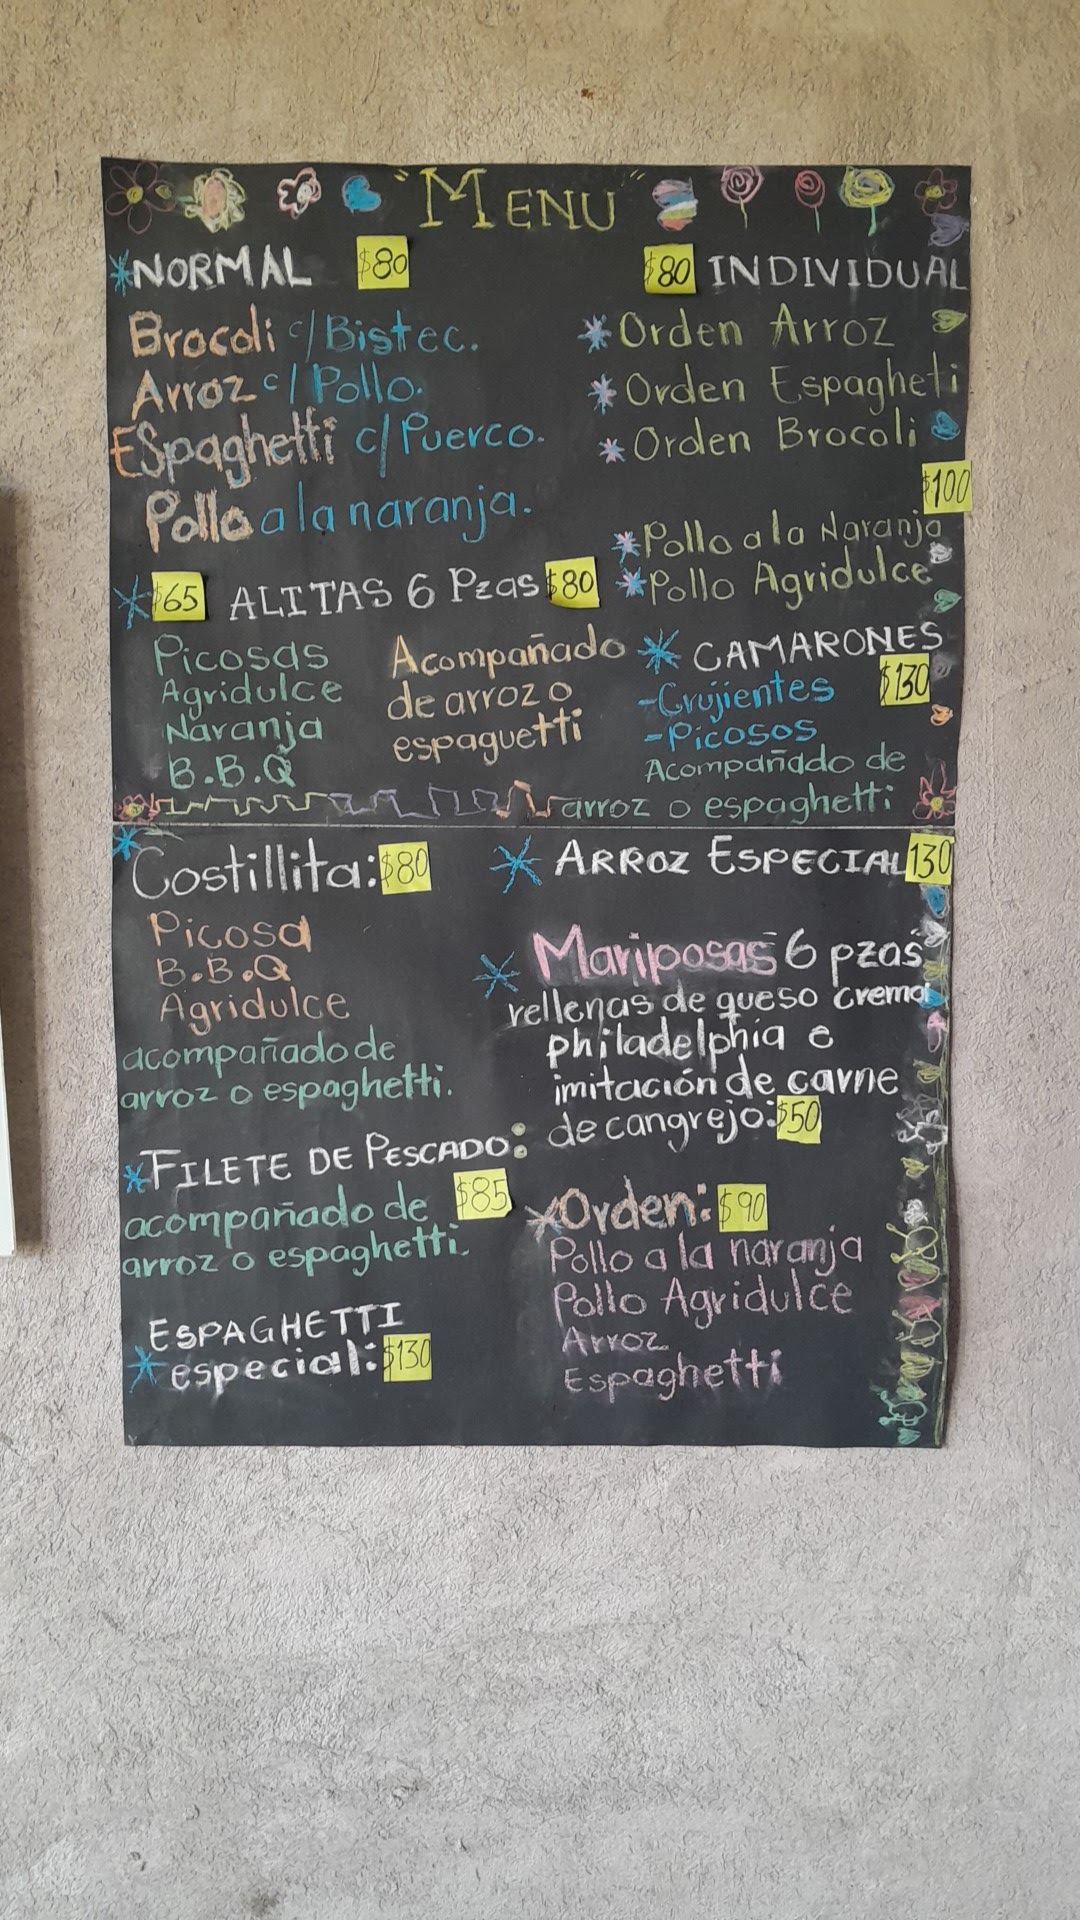 "MENU"
*NORMAL $80
Brocoli c/Bistec.
Arroz c/Pollo.
Espaghetti c/Puerco.
Pollo a la naranja.
$80 INDIVIDUAL
*Orden Arroz
*Orden Espagheti
*Orden Brocoli
$100
*Pollo a la Naranja
*Pollo Agridulce
* $65 ALITAS 6 Pzas $80
Picosas
Agridulce
Naranja
B.B.Q
Acompañado
de arroz o
espaguetti
* CAMARONES
$130
-Crujientes
-Picosos
Acompañado de
arroz o espaghetti
*Costillita: $80
Picosa
B.B.Q
Agridulce
acompañado de
arroz o espaghetti.
*FILETE DE PESCADO:
$85
acompañado de
arroz o espaghetti.
ESPAGHETTI
*especial: $130
* ARROZ ESPECIAL 130
* Mariposas 6 pzas
rellenas de queso crema
philadelphia e
imitación de carne
de cangrejo: $50
*Orden: $90
Pollo a la naranja
Pollo Agridulce
Arroz
Espaghetti